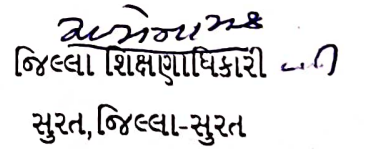 જિલ્લા શિક્ષણાધિકારી શ્રી
સુરત, જિલ્લા-સુરત